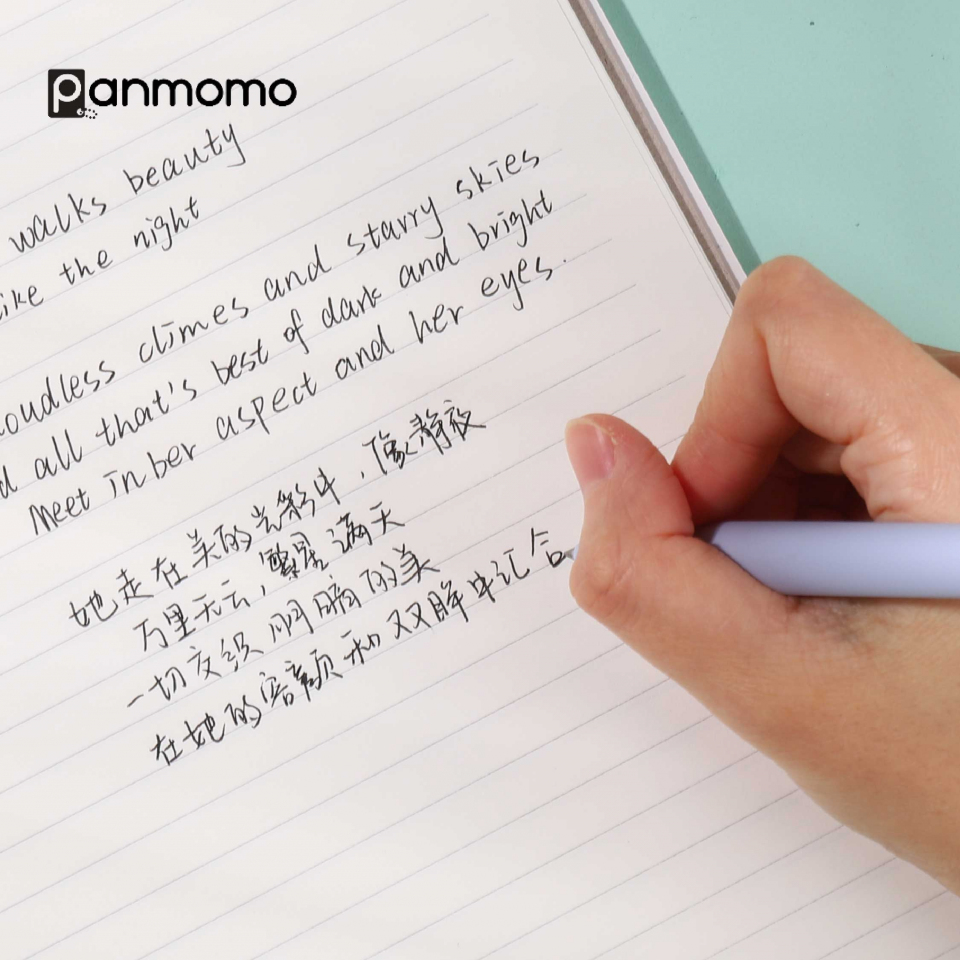 panmomo
walks beauty
like the night
loudless climes and starry skies
d all that's best of dark and bright
Meet in ber aspect and her eyes.
她走在美的光影中，像静夜
万里无云，繁星满天
一切交织明暗的美
在她的容颜和双眸中汇合